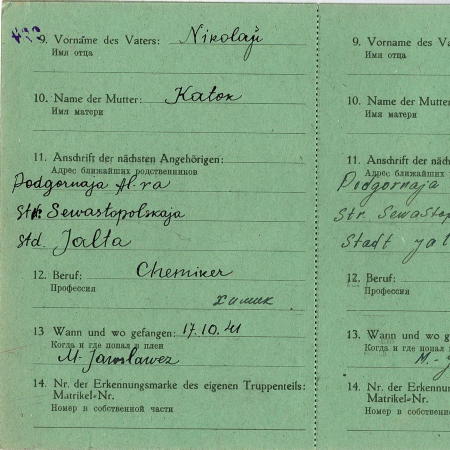 9. Vorname des Vaters: Nikolaji
Имя отца
10. Name der Mutter: Katok
Имя матери
11. Anschrift der nächsten Angehörigen:
Адрес ближайших родственников
Podgornaja Al-ra
Str. Sewastopolskaja
Std. Jalta
12. Beruf: Chemiker
Профессия
химик
13 Wann und wo gefangen: 17.10.41
Когда и где попал в плен
M-Jaroslawez
14. Nr. der Erkennungsmarke des eigenen Truppenteils:
Matrikel=Nr.
Номер в собственной части
9. Vorname des Va
Имя отца
10. Name der Mutter
Имя матери
11. Anschrift der näch
Адрес ближайших
Podgornaja
Str. Sewastop
Stadt Jal
12. Beruf:
Профессия
13. Wann und wo gef
Когда и где попал
M.-J
14. Nr. der Erkennung
Matrikel=Nr.
Номер в собственно